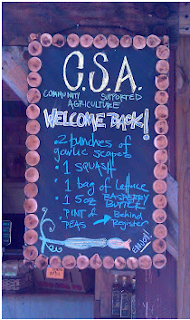 C.S.A.
COMMUNITY SUPPORTED
AGRICULTURE
WELCOME BACK!
2 bunches of
garlic scapes
• 1 SQUASH
• 1 bag of lettuce
• 1 5oz RASPBERRY
BUTTER
• PINT of → Behind
PEAS Register
ENJOY!